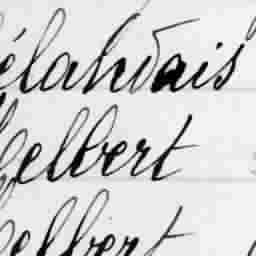 élahvais
Gelbert
Gelbert